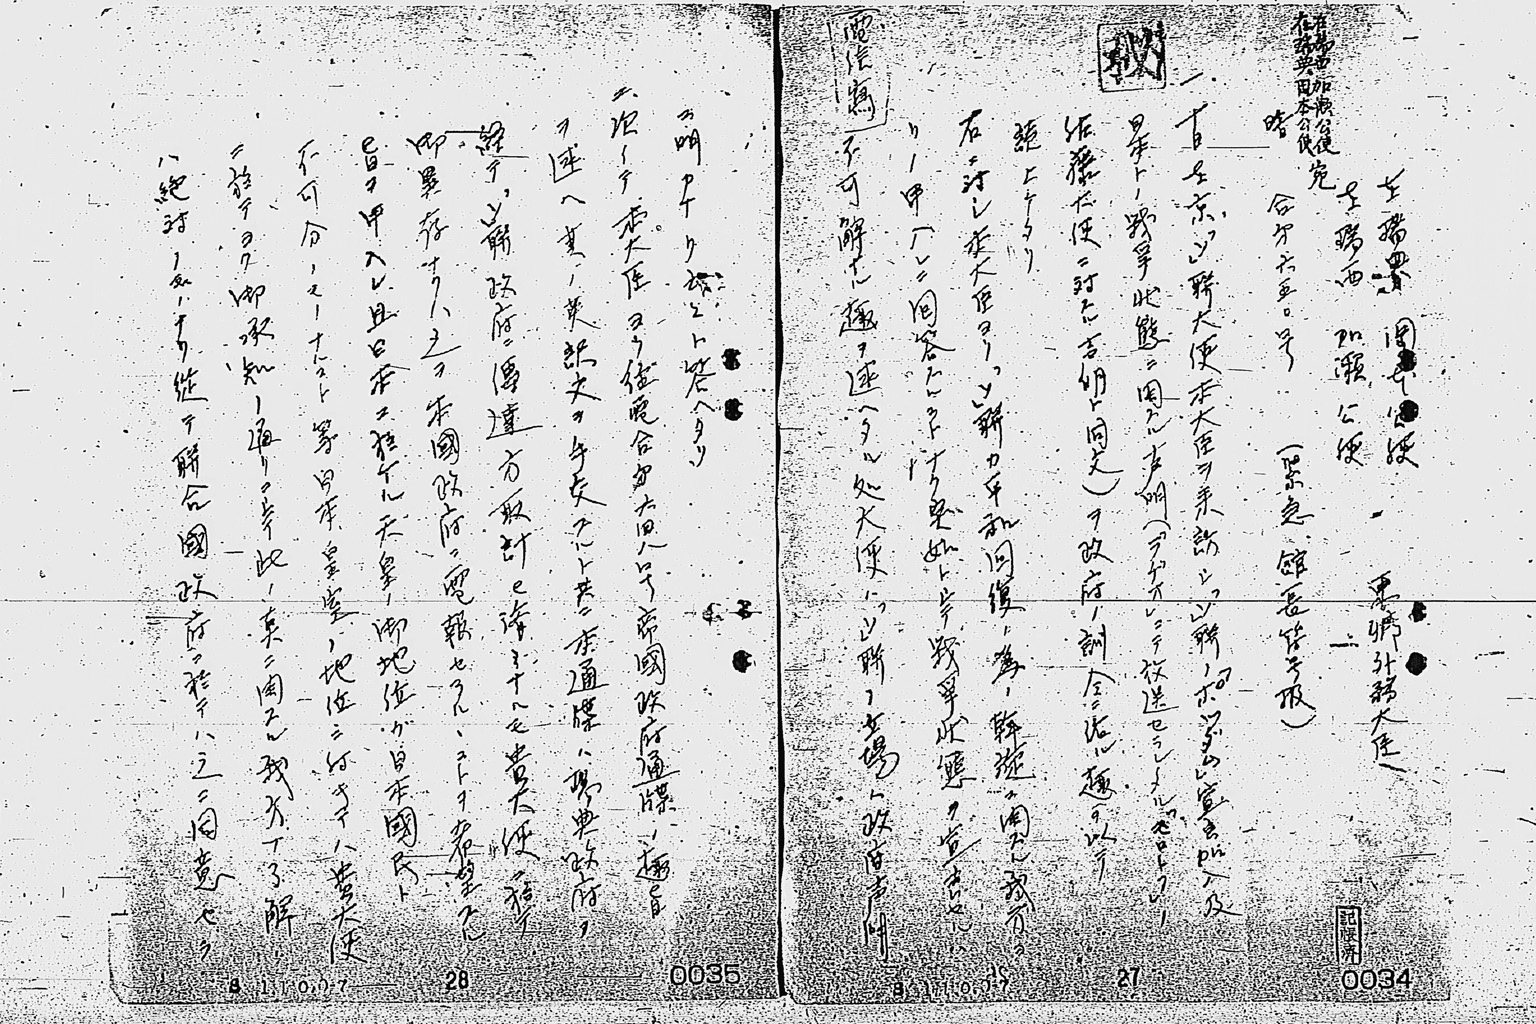 在瑞西加瀬公使
在瑞典岡本公使 宛
秘
在瑞典 岡本公使
在瑞西 加瀬公使
東郷外務大臣
暗 合第六五〇号 (緊急 館長符号扱)
一、十日在京「ソ」聯大使本大臣ヲ来訪シ「ソ」聯ノポツダム宣言加入及
日本トノ戦争状態ニ関スル声明(ラヂオニテ放送セラレタル「モロトフ」ノ
佐藤大使ニ対スル言明ト同文)ヲ政府ノ訓令ニ依ル趣ヲ以テ
読上ケタリ
右ニ対シ本大臣ヨリ「ソ」聯カ平和回復ノ為ノ斡旋ニ関スル我方ヨ
リノ申入レニ回答スルコトナク突如トシテ戦争状態ヲ宣言セルハ
不可解ナル趣ヲ述ヘタル処大使ハ「ソ」聯ノ立場ハ政府声明
電信寫
記帳済
0034
27
ニ明カナリ
ト答ヘタリ
二、次イテ本大臣ヨリ往電合第六四八号帝國政府通牒ノ趣旨
ヲ述ヘ其ノ英訳文ヲ手交スルト共ニ本通牒ハ瑞典政府ヲ
経テ「ソ」聯政府ニ傳達方取計ヒ濟ミナルモ貴大使ニ於テ
御異存ナクハ之ヲ本國政府ニ電報セラルルコトヲ希望スル
旨ヲ申入レ且日本ニ於ケル天皇ノ御地位ガ日本國民ト
不可分ノモノナルコト等日本皇室ノ地位ニ付キテハ貴大使
ニ於テヨク御承知ノ通リニシテ此ノ点ニ関スル我方ノ了解
ハ絶対ノモノナリ従テ聯合國政府ニ於テハ之ニ同意セラ
0035
28